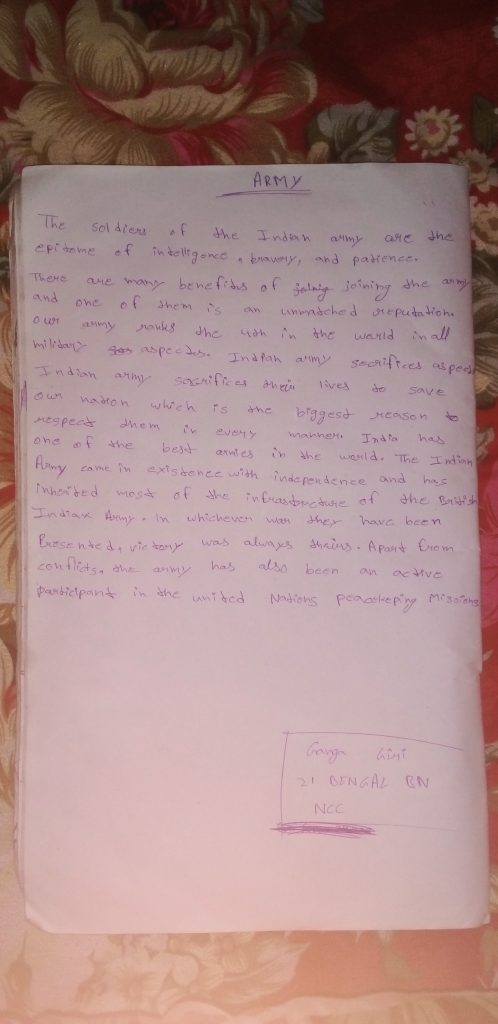 ARMY
The soldiers of the Indian army are the
epitome of intelligence, bravery, and patience.
There are many benefits of joining the army
and one of them is an unmatched reputation.
our army ranks the 4th in the world in all
military aspects. Indian army sacrifices aspects
Indian army sacrifices their lives to save
our nation which is the biggest reason to
respect them in every manner. India has
one of the best armies in the world. The Indian
Army came in existence with independence and has
inherited most of the infrastructure of the British
Indian Army. In whichever war they have been
Presented, victory was always theirs. Apart from
conflicts, the army has also been an active
participant in the united Nations peacekeping Missions
Ganga Giri
21 BENGAL BN
NCC